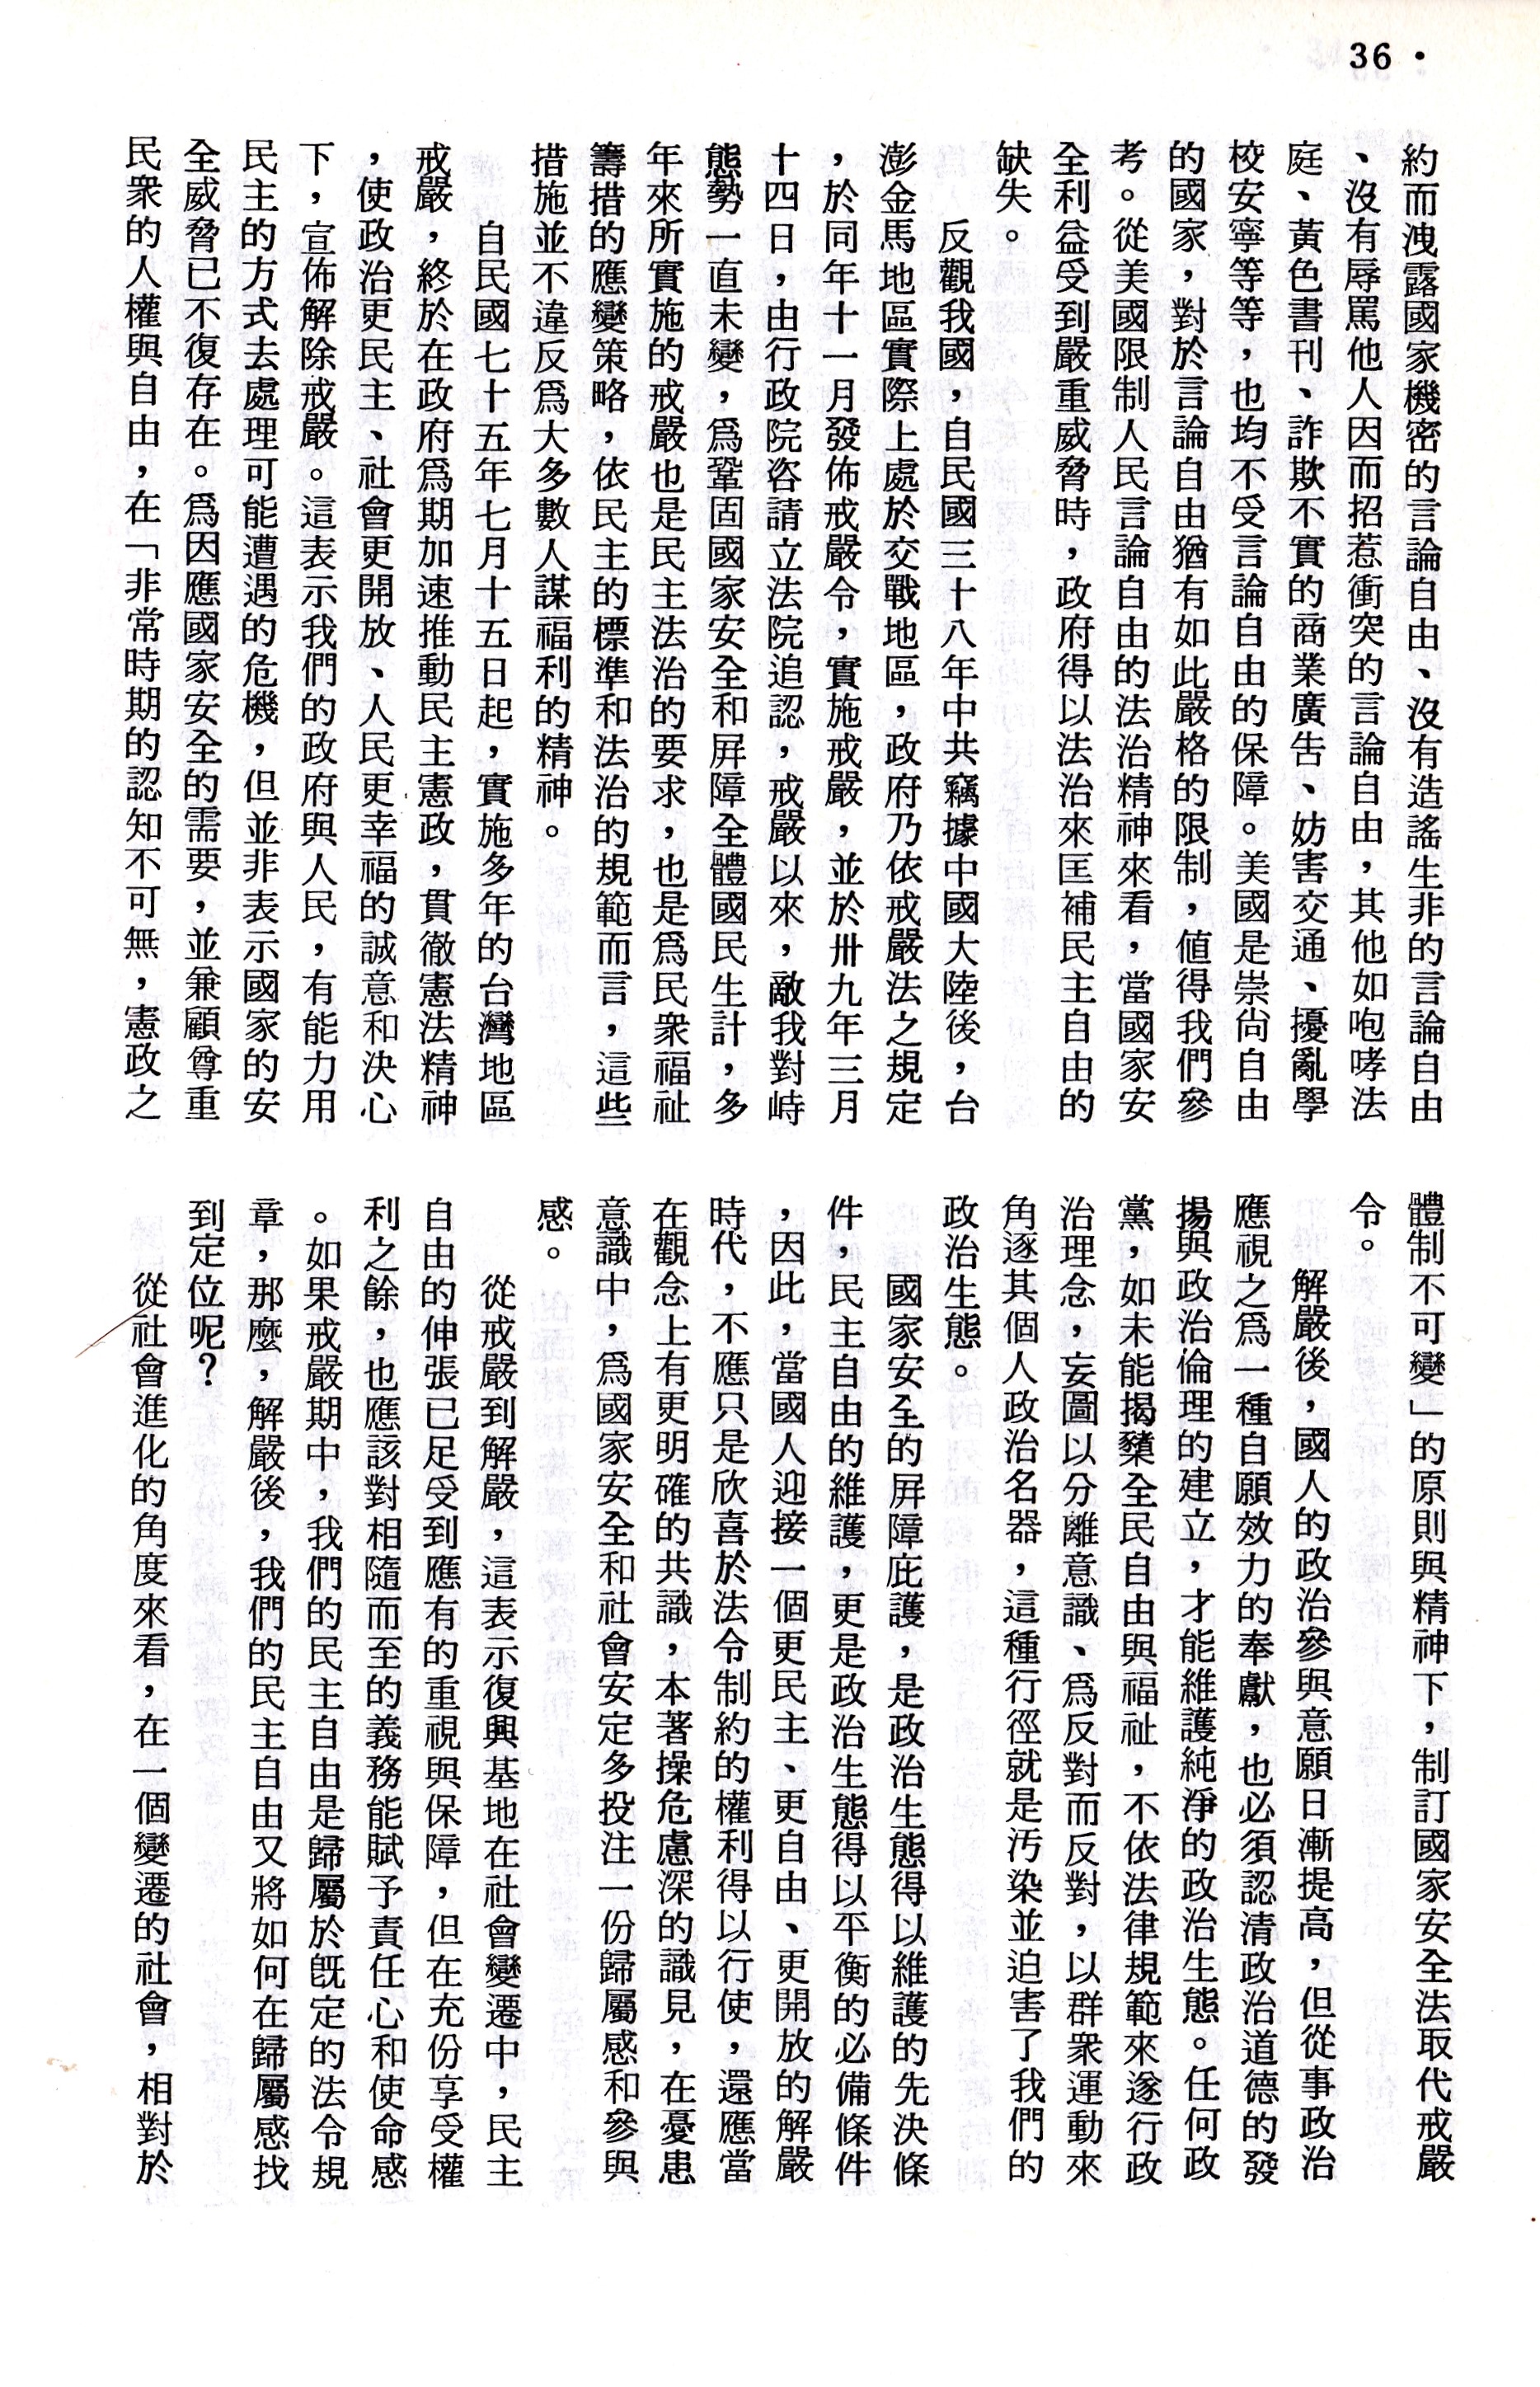 36・
約而洩露國家機密的言論自由、沒有造謠生非的言論自由
、沒有辱罵他人因而招惹衝突的言論自由，其他如咆哮法
庭、黃色書刊、詐欺不實的商業廣告、妨害交通、擾亂學
校安寧等等，也均不受言論自由的保障。美國是崇尙自由
的國家，對於言論自由猶有如此嚴格的限制，値得我們參
考。從美國限制人民言論自由的法治精神來看，當國家安
全利益受到嚴重威脅時，政府得以法治來匡補民主自由的
缺失。
反觀我國，自民國三十八年中共竊據中國大陸後，台
澎金馬地區實際上處於交戰地區，政府乃依戒嚴法之規定
，於同年十一月發佈戒嚴令，實施戒嚴，並於卅九年三月
十四日，由行政院咨請立法院追認，戒嚴以來，敵我對峙
態勢一直未變，爲鞏固國家安全和屏障全體國民生計，多
年來所實施的戒嚴也是民主法治的要求，也是爲民衆福祉
籌措的應變策略，依民主的標準和法治的規範而言，這些
措施並不違反爲大多數人謀福利的精神。
自民國七十五年七月十五日起，實施多年的台灣地區
戒嚴，終於在政府爲期加速推動民主憲政，貫徹憲法精神
，使政治更民主、社會更開放、人民更幸福的誠意和決心
下，宣佈解除戒嚴。這表示我們的政府與人民，有能力用
民主的方式去處理可能遭遇的危機，但並非表示國家的安
全威脅已不復存在。爲因應國家安全的需要，並兼顧尊重
民衆的人權與自由，在「非常時期的認知不可無，憲政之
體制不可變」的原則與精神下，制訂國家安全法取代戒嚴
令。
解嚴後，國人的政治參與意願日漸提高，但從事政治
應視之爲一種自願效力的奉獻，也必須認清政治道德的發
揚與政治倫理的建立，才能維護純淨的政治生態。任何政
黨，如未能揭櫫全民自由與福祉，不依法律規範來遂行政
治理念，妄圖以分離意識、爲反對而反對，以群衆運動來
角逐其個人政治名器，這種行徑就是汚染並迫害了我們的
政治生態。
國家安全的屏障庇護，是政治生態得以維護的先決條
件，民主自由的維護，更是政治生態得以平衡的必備條件
，因此，當國人迎接一個更民主、更自由、更開放的解嚴
時代，不應只是欣喜於法令制約的權利得以行使，還應當
在觀念上有更明確的共識，本著操危慮深的識見，在憂患
意識中，爲國家安全和社會安定多投注一份歸屬感和參與
感。
從戒嚴到解嚴，這表示復興基地在社會變遷中，民主
自由的伸張已足受到應有的重視與保障，但在充份享受權
利之餘，也應該對相隨而至的義務能賦予責任心和使命感
。如果戒嚴期中，我們的民主自由是歸屬於旣定的法令規
章，那麼，解嚴後，我們的民主自由又將如何在歸屬感找
到定位呢？
從社會進化的角度來看，在一個變遷的社會，相對於